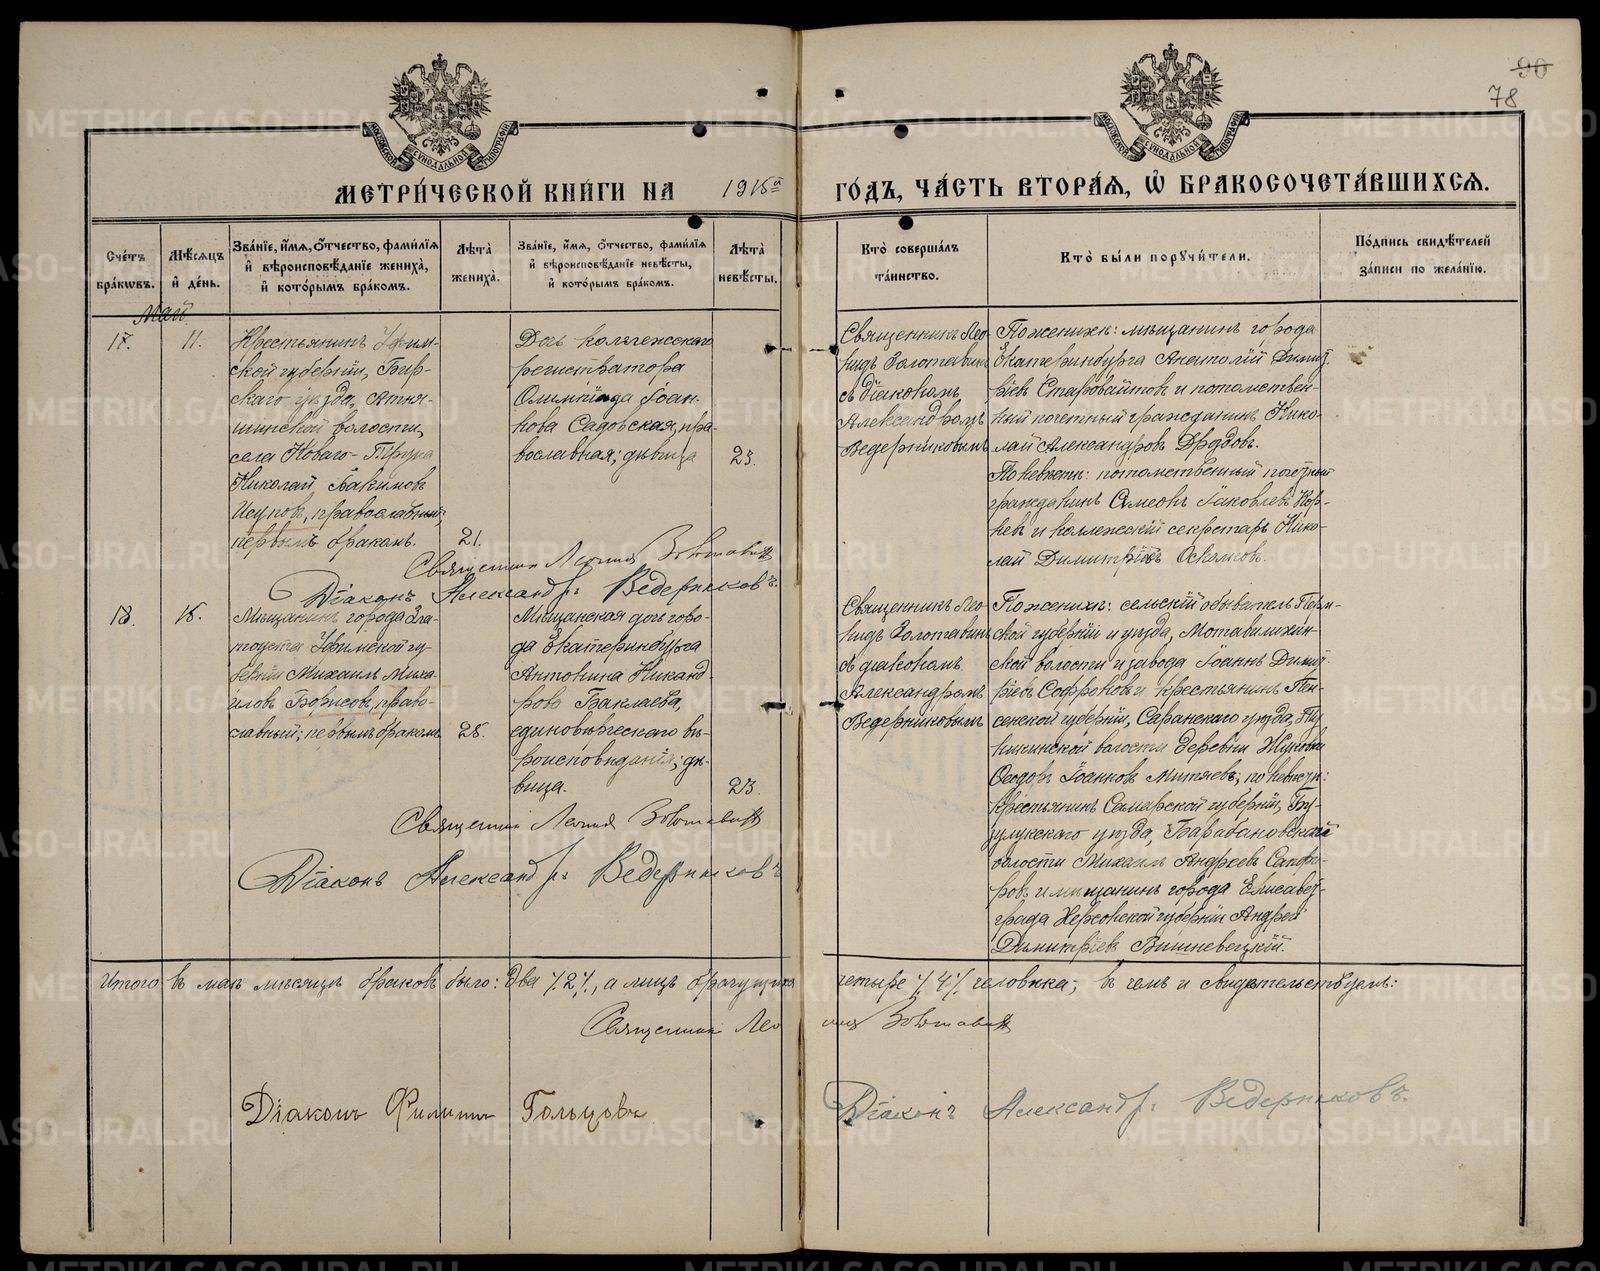 90
78
МЕТРИ́ЧЕСКОЙ КНИ́ГИ НА 1915й ГО́ДЪ, ЧА́СТЬ ВТОРА́Я, Ѡ҆ БРАКОСОЧЕТА́ВШИХСЯ.
Сче́тъ бра́кѡвъ.
Мѣ́сяцъ и҆ де́нь.
Зва́нїе, и҆́мя, ѻ҆́тчество, фами́лїя и҆ вѣроисповѣ́данїе жениха̀, и҆ кото́рымъ бра́комъ.
Лѣ́та жениха̀.
Зва́нїе, и҆́мя, ѻ҆́тчество, фами́лїя и҆ вѣроисповѣ́данїе невѣ́сты, и҆ кото́рымъ бра́комъ.
Лѣ́та невѣ́сты.
Кто̀ соверша́лъ та́инство.
Кто̀ бы́ли порꙋчи́тели.
По́дпись свидѣ́телей за́писи по жела́нїю.
Май
17.
11.
Крестьянинъ Уфим-
ской губернiи, Бир-
скаго уѣзда,
волости,
села Новаго-
Николай Iакимовъ
Исуповъ, православный;
первымъ бракомъ.
21.
Дочь коллежскаго
регистратора
Олимпiада Iоан-
нова Садовская, пра-
вославная; дѣвица
23.
Священникъ Лео-
нидъ Золотавинъ
съ дiакономъ
Александромъ
Ведерниковымъ
По женихѣ: мѣщанинъ города
Екатеринбурга Анатолiй Димит-
рiевъ и потомствен-
ный почетный гражданинъ Нико-
лай Александровъ Дроздовъ.
По невѣстѣ: потомственный почетный
гражданинъ Симеонъ Iаковлевъ Кор-
невъ и коллежскiй секретарь Нико-
лай Димитрiевъ Осколковъ.
Священникъ Леонидъ Золотавинъ
Дiаконъ Александръ Ведерниковъ.
18.
15.
Мѣщанинъ города Зла-
тоуста Уфимской гу-
бернiи Михаилъ Миха-
иловъ Борисовъ, право-
славный; первымъ бракомъ
25.
Мѣщанская дочь горо-
да Екатеринбурга
Антонина Никанд-
рова Баклаева,
единовѣрческаго вѣ-
роисповѣданiя; дѣ-
вица.
23.
Священникъ Лео-
нидъ Золотавинъ
съ дiакономъ
Александромъ
Ведерниковымъ
По женихѣ: сельскiй обыватель Перм-
ской губернiи и уѣзда, Мотовилихин-
ской волости и завода Iоаннъ Димит-
рiевъ Софроновъ и крестьянинъ Пен-
зенской губернiи, Саранскаго уѣзда,
волости деревни Жуковки
Ѳеодоръ Iоанновъ Митяевъ; по невѣстѣ:
крестьянинъ Самарской губернiи, Бу-
зулукскаго уѣзда, Барабановской
волости Михаилъ Андреевъ
и мѣщанинъ города Елисавет-
града Херсонской губернiи Андрей
Димитрiевъ Вишневецкiй.
Священникъ Леонидъ Золотавинъ
Дiаконъ Александръ Ведерниковъ
Итого въ маѣ мѣсяцѣ браковъ было: два /.2./, а лицъ брачущихся четыре /.4./ человѣка; въ чемъ и свидѣтельствуемъ:
Священникъ Леонидъ Золотавинъ
Дiаконъ Александръ Ведерниковъ.
Дiаконъ Филиппъ Гольцовъ
METRIKI.GASO-URAL.RU